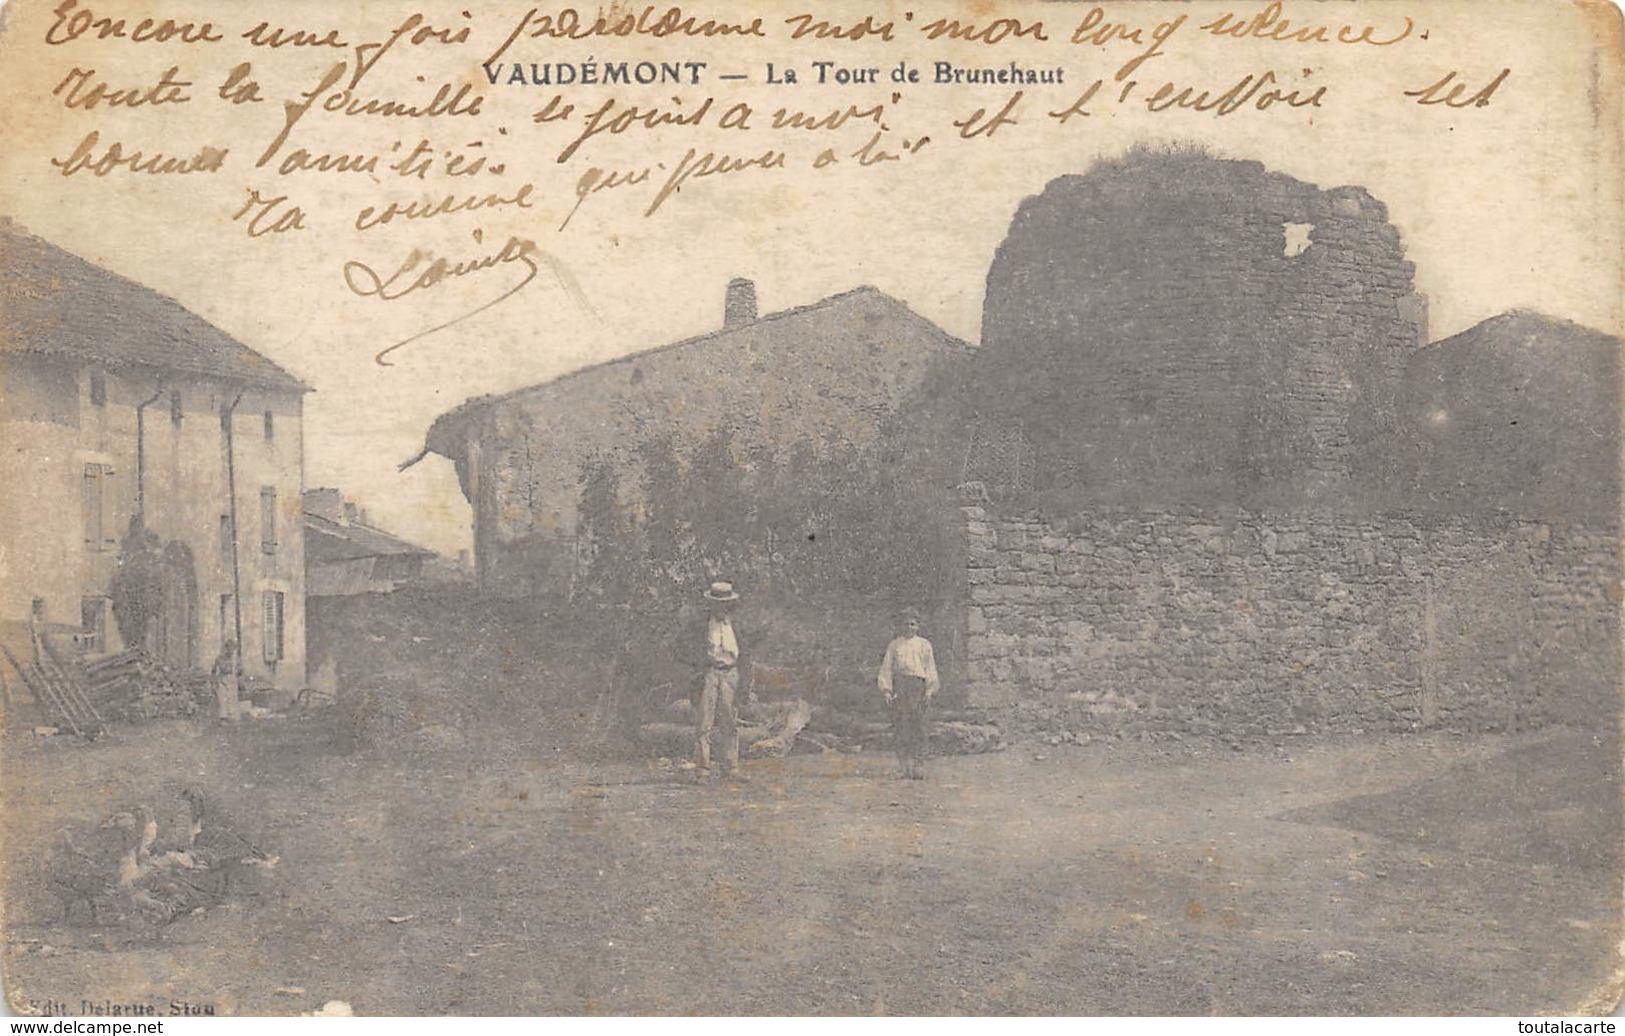 Encore une fois pardonne moi mon long silence.
VAUDÉMONT — La Tour de Brunehaut
Toute la famille se joint a moi et t'envoie ses
bonnes amitiés.
Ta cousine qui pense a toi
Edit. Delarue, Sion
www.delcampe.net
toutalacarte